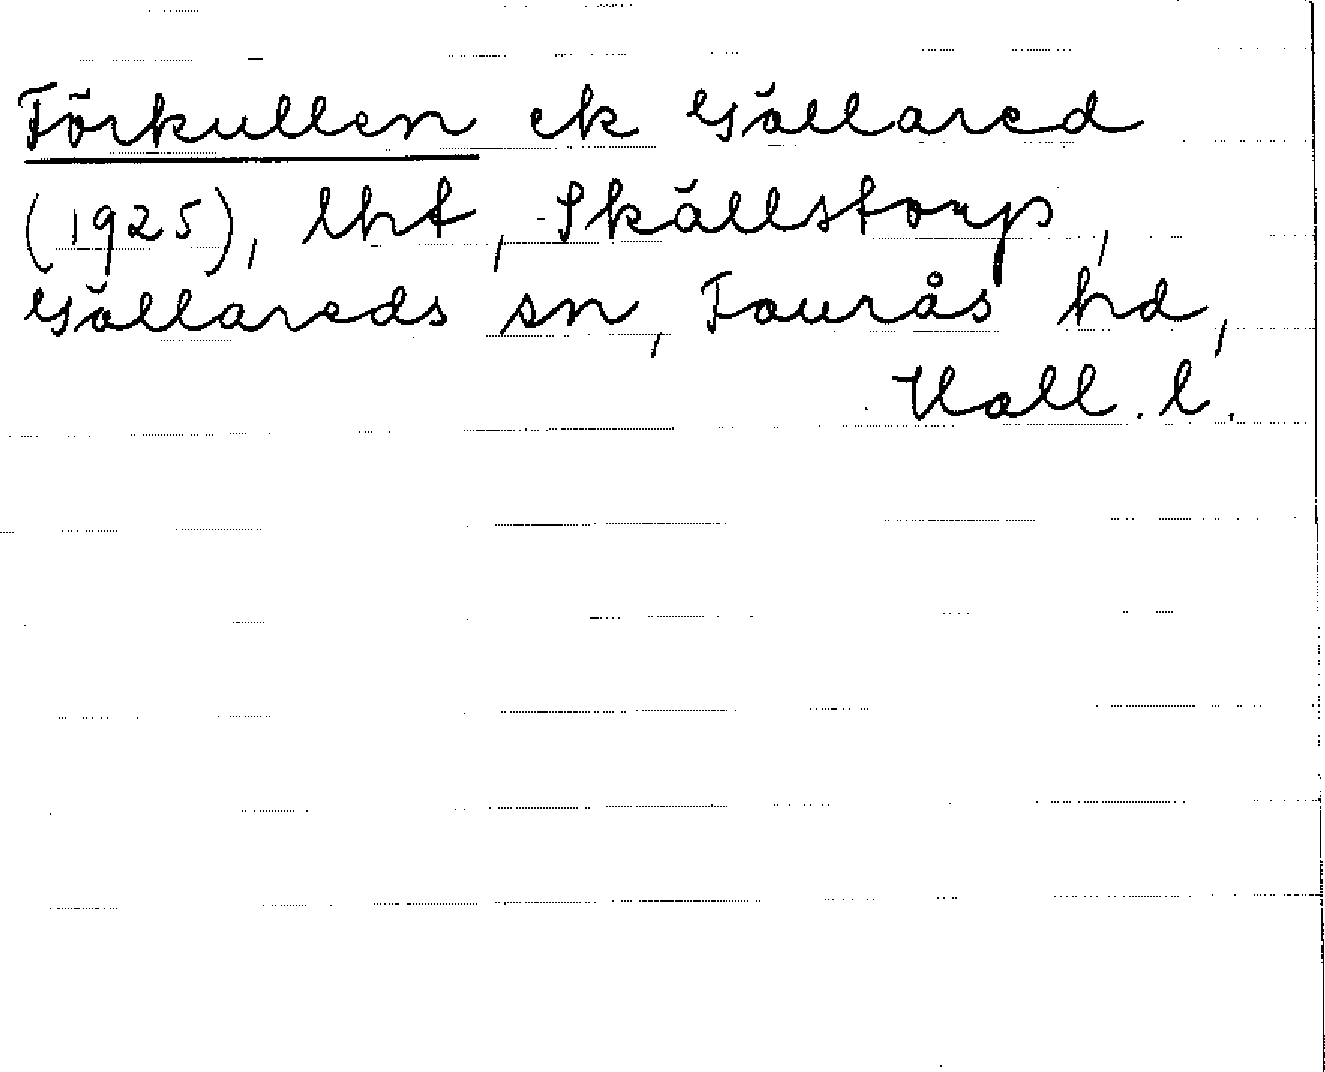 Förkullen ek Gällared
(1925), lht, Skällstorp,
Gällareds sn, Faurås hd,
Hall. l.